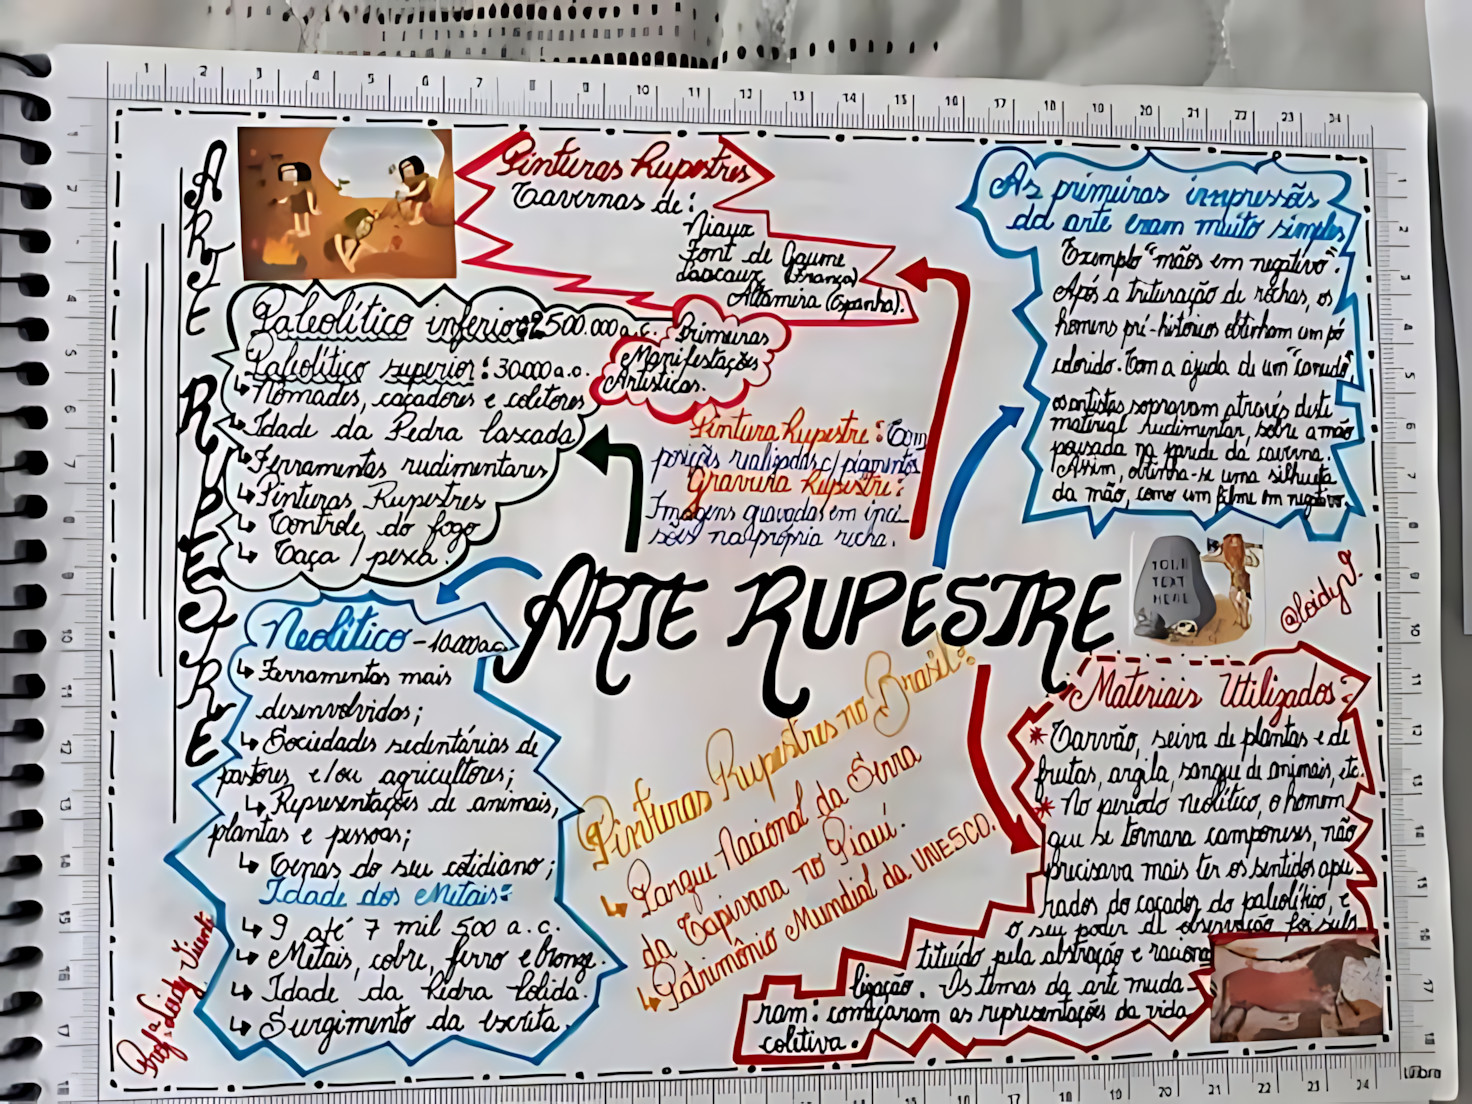 ARTE RUPESTRE
Pinturas Rupestres
Cavernas de:
Niaux
Font de Gaume
Lascaux (França)
Altamira (Espanha).
As primeiras impressões
da arte eram muito simples
Exemplo "mãos em negativo".
Após a trituração de rochas, os
homens pré-históricos obtinham um pó
colorido. Com a ajuda de um "canudo",
os artistas sopravam através deste
material rudimentar, sobre a mão
pousada na parede da caverna.
Assim, obtinha-se uma silhueta
da mão, como um filme em negativo.
Paleolítico inferior: 2500.000 a.c.
Paleolítico superior: 30.000 a.c.
↳ Nômades, caçadores e coletores
↳ Idade da Pedra lascada
↳ Ferramentas rudimentares
↳ Pinturas Rupestres
↳ Controle do fogo
↳ Caça / pesca.
Primeiras
Manifestações
Artísticas.
Pintura Rupestre: Com
posições realizadas c/ pigmentos
Gravura Rupestre:
Imagens gravadas em inci
sões na própria rocha.
ARTE RUPESTRE
YOUR
TEXT
HERE
@loidy
Neolítico - 10.000 a.c
↳ Ferramentas mais
desenvolvidas;
↳ Sociedades sedentárias de
pastores e/ou agricultores;
↳ Representações de animais,
plantas e pessoas;
↳ Cenas do seu cotidiano;
Idade dos Metais:
↳ 9 até 7 mil 500 a.c.
↳ Metais, cobre, ferro e bronze.
↳ Idade da Pedra Polida.
↳ Surgimento da escrita.
Pinturas Rupestres no Brasil:
↳ Parque Nacional da Serra
da Capivara no Piauí.
↳ Patrimônio Mundial da UNESCO.
Materiais Utilizados:
* Carvão, seiva de plantas e de
frutas, argila, sangue de animais, etc.
* No período neolítico, o homem
que se tornara camponeses, não
precisava mais ter os sentidos apu
rados do caçador do paleolítico, e
o seu poder de observação foi subs
tituído pela abstração e raciona
lização. Os temas da arte muda-
ram: começaram as representações da vida
coletiva.
Profª Loidy